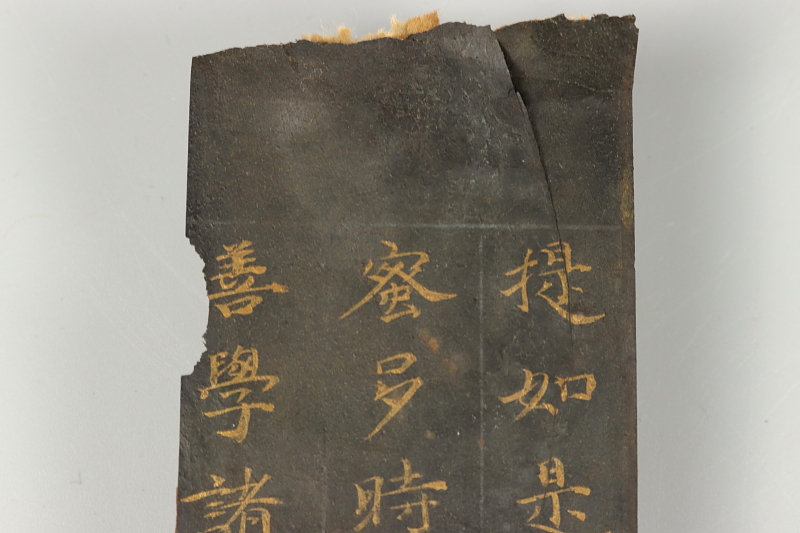 提如是
蜜多時
善學諸